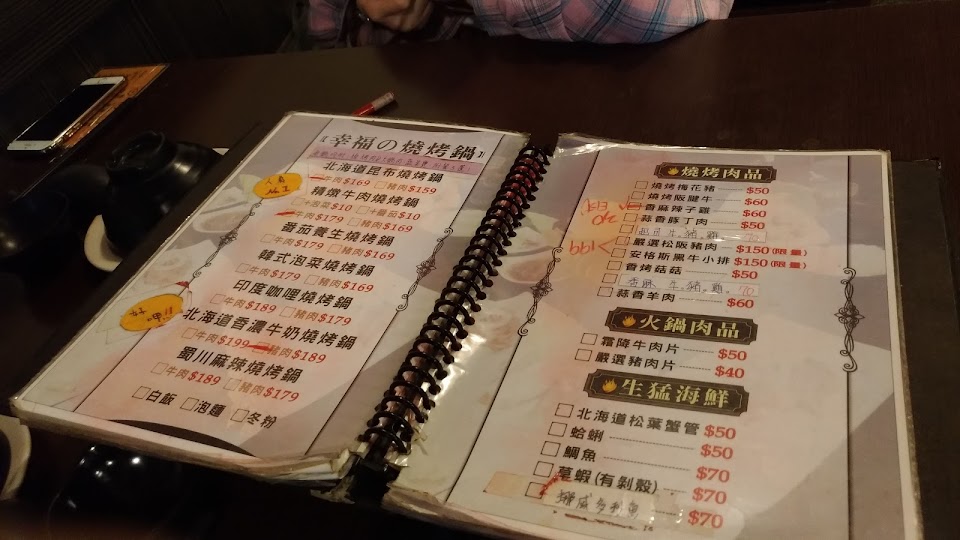 幸福の燒烤鍋
北海道昆布燒烤鍋
牛肉$169 豬肉$159
精燉牛肉燒烤鍋
+泡菜$10 +番茄$10
牛肉$179 豬肉$169
番茄養生燒烤鍋
牛肉$179 豬肉$169
韓式泡菜燒烤鍋
牛肉$179 豬肉$169
印度咖哩燒烤鍋
牛肉$189 豬肉$179
北海道香濃牛奶燒烤鍋
牛肉$199 豬肉$189
蜀川麻辣燒烤鍋
牛肉$189 豬肉$179
白飯 泡麵 冬粉
燒烤肉品
燒烤梅花豬 $50
燒烤阪腱牛 $60
香麻辣子雞 $60
蒜香豚丁肉 $50
嚴選松阪豬肉 $150(限量)
安格斯黑牛小排 $150(限量)
199
香烤菇菇 $50
蒜香羊肉 $60
火鍋肉品
霜降牛肉片 $50
嚴選豬肉片 $40
生猛海鮮
北海道松葉蟹管 $50
蛤蜊 $50
鯛魚 $70
草蝦(有剝殼) $70
挪威多利魚 $70